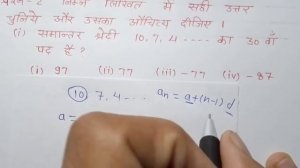 प्रश्न-2 निम्न लिखित में सही उत्तर
चुनिये और उसका औचित्य दीजिए ।
(i) समान्तर श्रेढी 10, 7, 4 ---- का 30 वाँ
पद हैं ?
(i) 97 (ii) 77 (iii) -77 (iv) - 87
10 7, 4 --- an = a+(n-1) d
a =